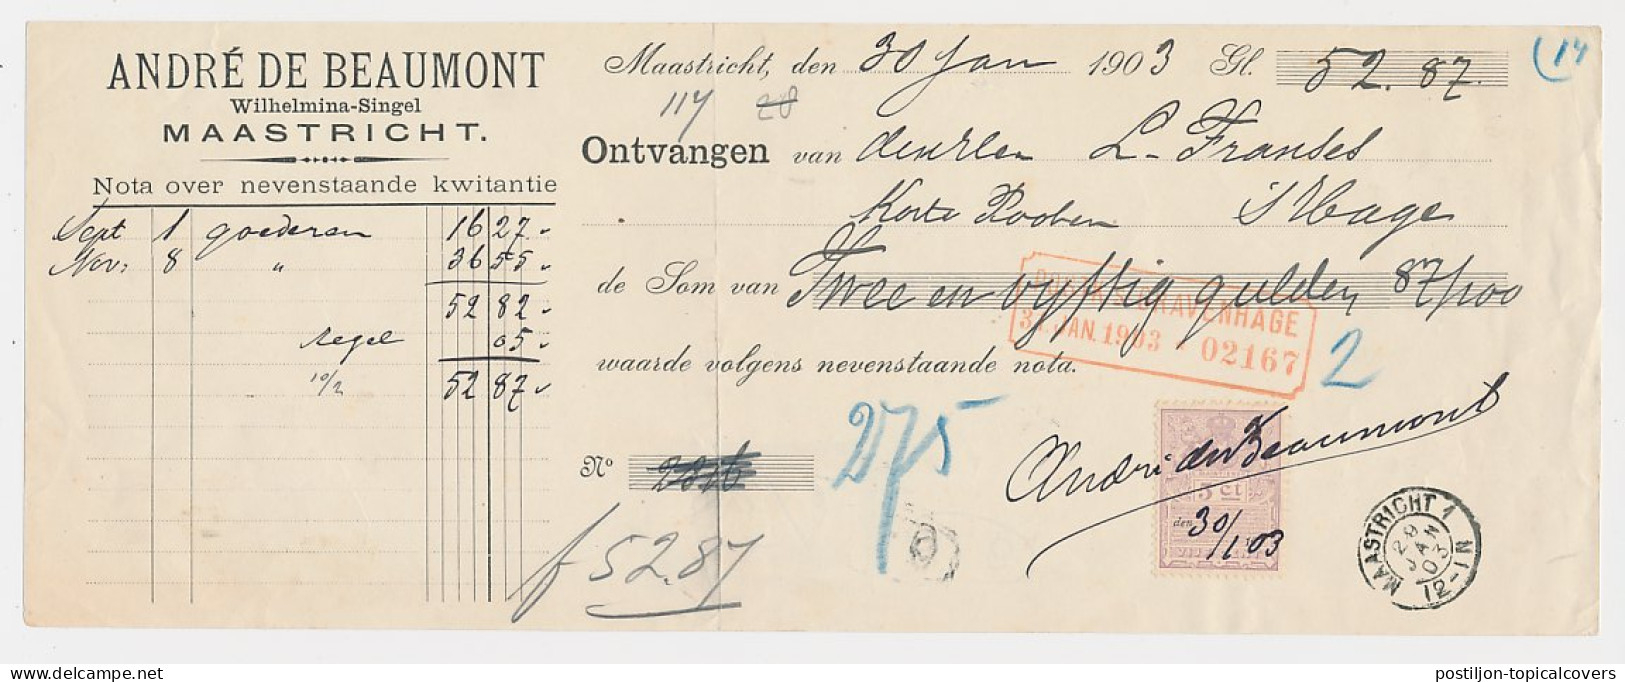 ANDRÉ DE BEAUMONT
Wilhelmina-Singel
MAASTRICHT.
Nota over nevenstaande kwitantie
Sept 1 goederen 16 27
Nov: 8 " 36 55
52 82
segel 05
10/2 52 87
Maastricht, den 30 Jan 1903 Gl. 52.87.
(14
117 28
Ontvangen van L. Franses
Korte Pooten s'Hage
de Som van Twee en vyftig gulden 87/100
'S GRAVENHAGE
31 JAN. 1903 02167
2
waarde volgens nevenstaande nota.
275
No
f 52.87
André de Beaumont
5 ct
den 30/1 03
MAASTRICHT 1
28 JAN 03
12-1 N
postiljon-topicalcovers